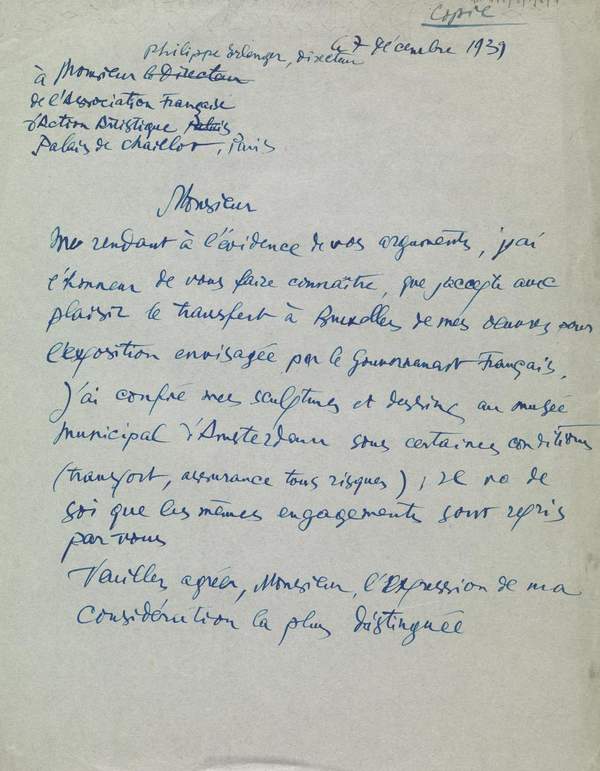 Copie
le 7 décembre 1939
Philippe Erlanger, directeur
à Monsieur le Directeur
de l'Association Française
d'Action Artistique Palais
Palais de Chaillot, Paris
Monsieur
Me rendant à l'évidence de vos arguments, j'ai
l'honneur de vous faire connaître, que j'accepte avec
plaisir le transfert à Bruxelles de mes oeuvres pour
l'exposition envisagée par le Gouvernement Français.
J'ai confié mes sculptures et dessins au musée
municipal d'Amsterdam sous certaines conditions
(transport, assurance tous risques) ; il va de
soi que les mêmes engagements sont repris
par vous
Veuillez agréer, Monsieur, l'expression de ma
considération la plus distinguée